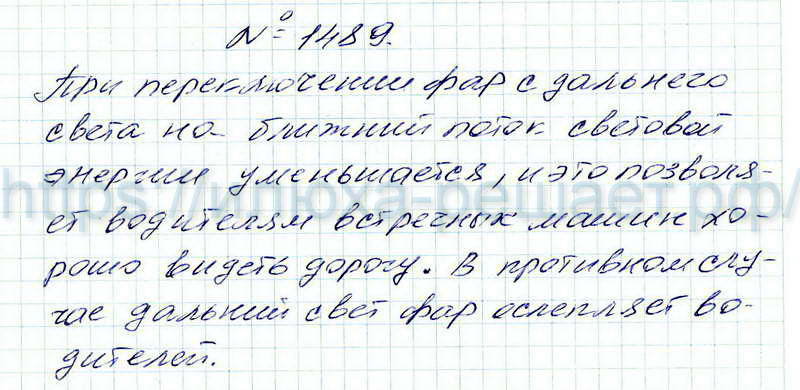 № 1489.
При переключении фар с дальнего
света на ближний поток световой
энергии уменьшается, и это позволя-
https://илюха-решает.рф/
ет водителям встречных машин хо-
рошо видеть дорогу. В противном слу-
чае дальний свет фар ослепляет во-
дителей.